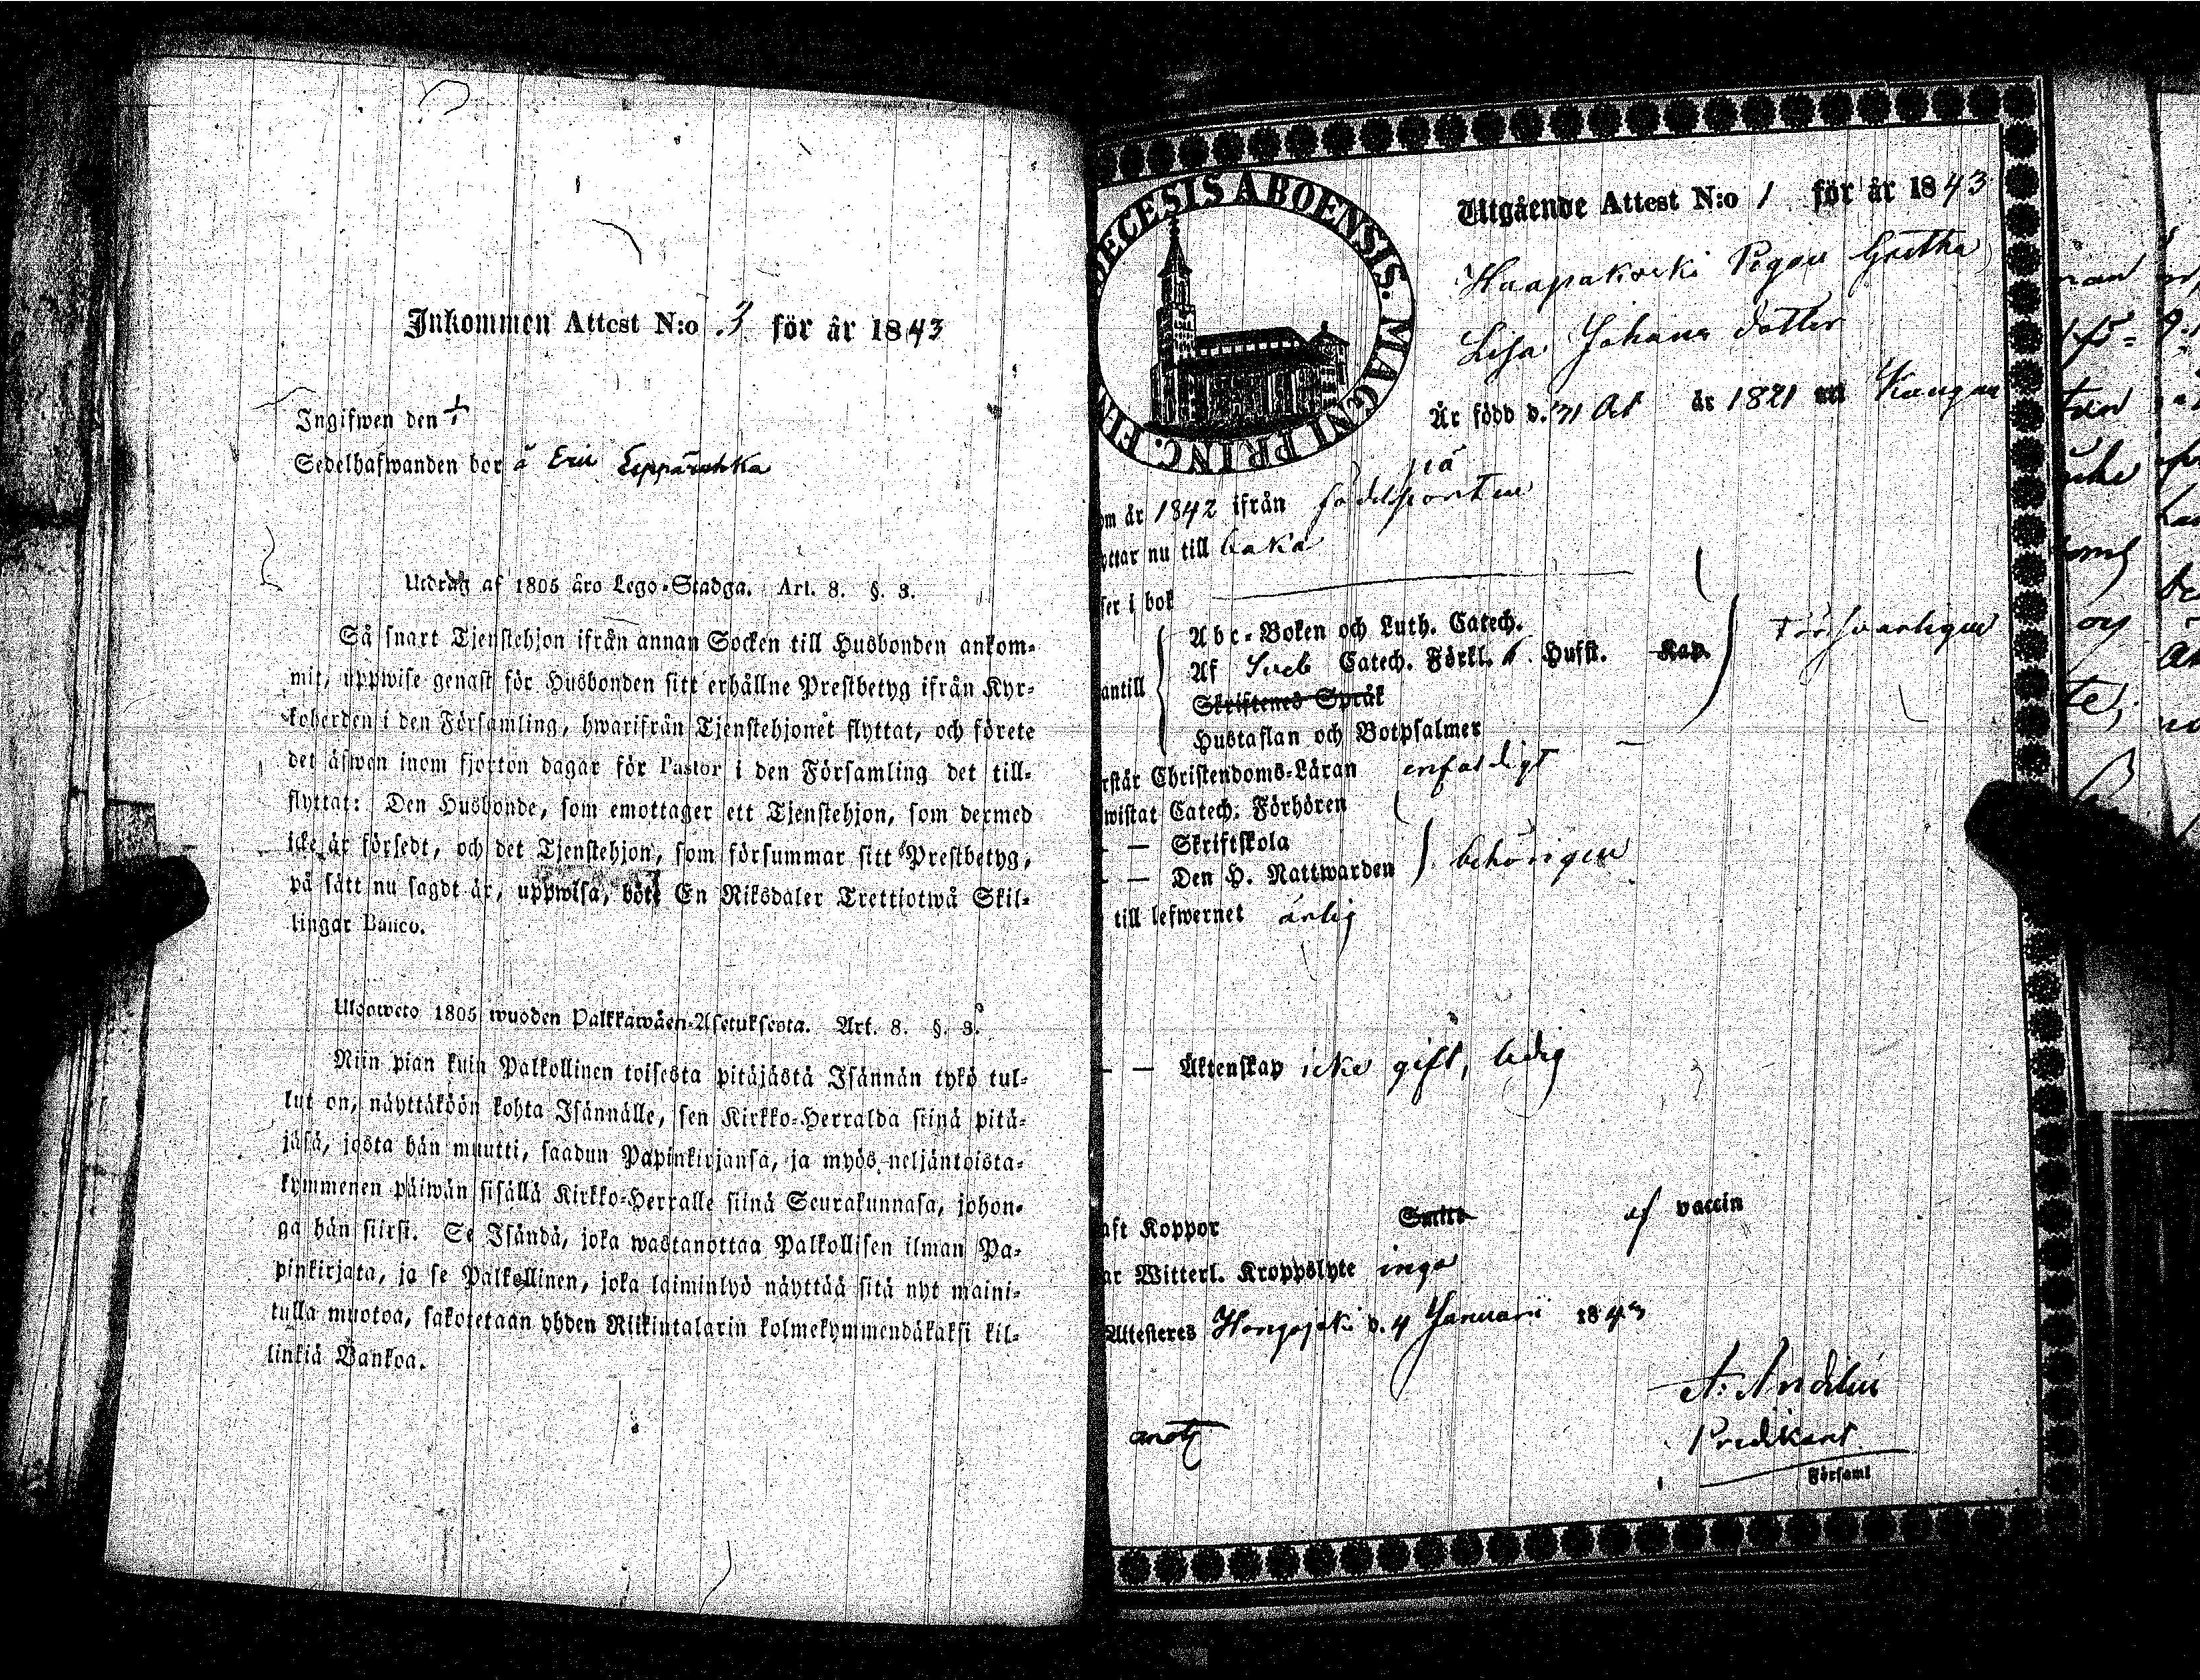 Inkommen Attest N:o 3 för år 1843
Ingifwen den
Sedelhafwanden bor å Eru Lepparahka
Utdrag af 1805 års Lego-Stadga. Art. 8. §. 3.
Så snart Tjenstehjon ifrån annan Socken till Husbonden ankom-
mit, uppwise genast för Husbonden sitt erhållne Prestbetyg ifrån Kyr-
koherden i den Församling, hwarifrån Tjenstehjonet flyttat, och förete
det äfwen inom fjorton dagar för Pastor i den Församling det till-
flyttat: Den Husbonde, som emottager ett Tjenstehjon, som dermed
icke är försedt, och det Tjenstehjon, som försummar sitt Prestbetyg,
på sätt nu sagdt är, uppwisa, böte En Riksdaler Trettiotwå Skil-
lingar Banco.
Ulosweto 1805 wuoden Palkkawäen-Asetuksesta. Art. 8. §. 3.
Niin pian kuin Palkollinen toisesta pitäjästä Isännän tykö tul-
lut on, näyttäköön kohta Isännälle, sen Kirkko-Herralda siinä pitä-
jäsä, josta hän muutti, saadun Papinkirjansa, ja myös neljäntoista-
kymmenen päiwän sisällä Kirkko-Herralle siinä Seurakunnasa, johon-
ga hän siirsi. Se Isändä, joka wastanottaa Palkollisen ilman Pa-
pinkirjata, ja se Palkollinen, joka laiminlyö näyttää sitä nyt maini-
tulla muotoa, sakotetaan yhden Riikintalarin kolmekymmendäkaksi kil-
linkiä Bankoa.
DIECESIS ABOENSIS. MAGNI PRINC. FIN
Utgående Attest N:o 1 för år 1843
Haapakoski Pigan Gretha
Lisa Johans dotter
År född d. 31 Oct år 1821 uti Kangan
pä
om år 1842 ifrån födelseorten
yttar nu till baka
ser i bok
Abc-Boken och Luth. Catech.
Af Sveb Catech. Förkl. 6. Hufst. Kap. försvarligen
antill
Skriftenes Språk
Hustaflan och Botpsalmer
rstår Christendoms-Läran enfaldigt
wistat Catech. Förhören
— — Skriftskola
— — Den H. Nattwarden behörigen
till lefwernet ärlig
— — Äktenskap icke gift, ledig
aft Koppor Smitt af vaccin
ar Witterl. Kroppslyte inga
Attesteres Hongojoki d. 4 Januarii 1843
A. Andelin
Predikant
Församl
anotz